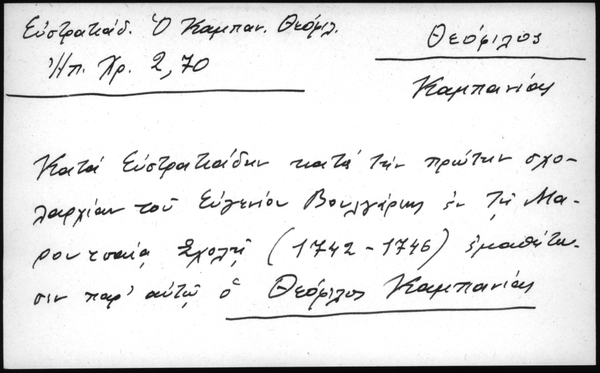 Εὐστρατιάδ. Ὁ Καμπαν. Θεόφιλ.
Ἠπ. Χρ. 2,70
Θεόφιλος
Καμπανίας
Κατά Εὐστρατιάδην κατά τήν πρώτην σχο-
λαρχίαν τοῦ Εὐγενίου Βουλγάρεως ἐν τῇ Μα-
ρουτσαίᾳ Σχολῇ (1742-1746) ἐμαθήτευ-
σεν παρ' αὐτῷ ὁ Θεόφιλος Καμπανίας